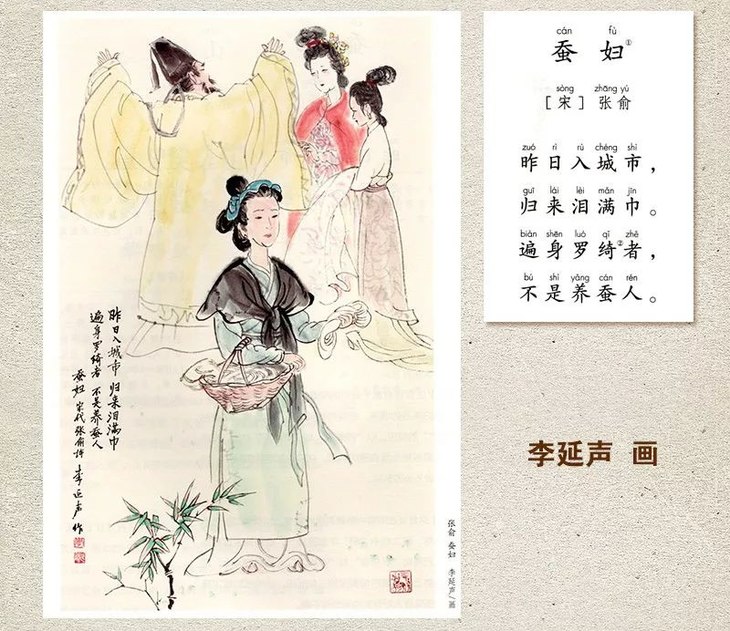 昨日入城市 归来泪满巾
遍身罗绮者 不是养蚕人
蚕妇 宋代张俞诗 李延声作
张俞 蚕妇 李延声/画
cán fù
蚕 妇①
sòng zhāng yú
[宋] 张 俞
zuó rì rù chéng shì
昨日入城市，
guī lái lèi mǎn jīn
归来泪满巾。
biàn shēn luó qǐ zhě
遍身罗绮②者，
bú shì yǎng cán rén
不是养蚕人。
李延声 画